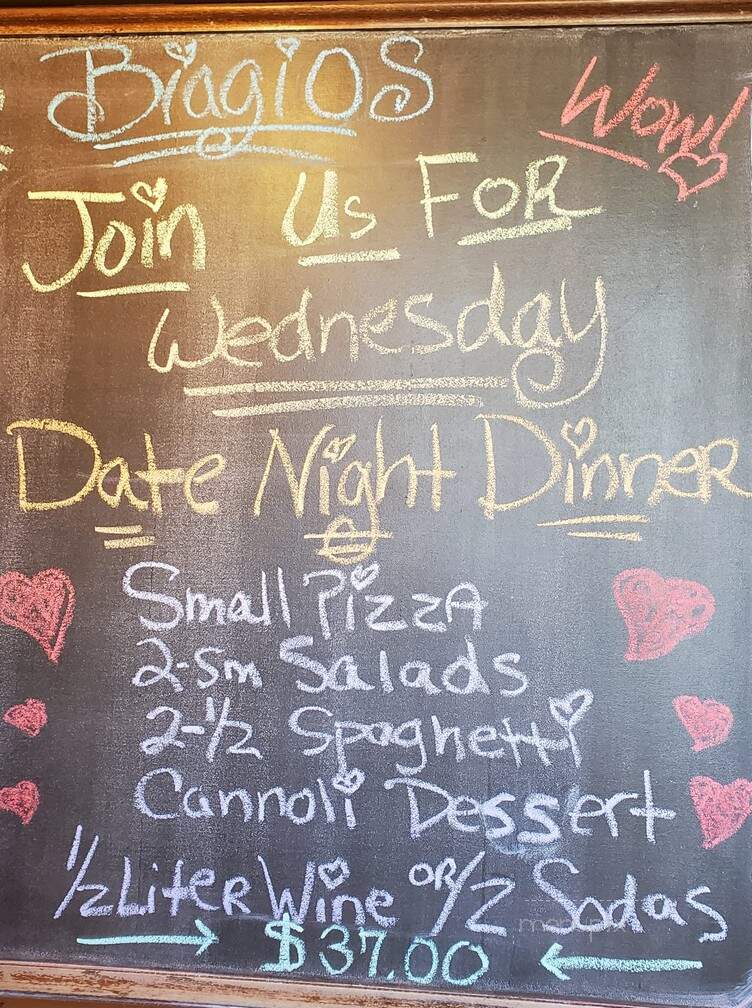 BiagiOS
Wow!
Join Us FOR
Wednesday
Date Night DinneR
Small PizzA
2-Sm Salads
2-1/2 Spaghetti
Cannoli Dessert
1/2 LiteR Wine OR/2 Sodas
$37.00